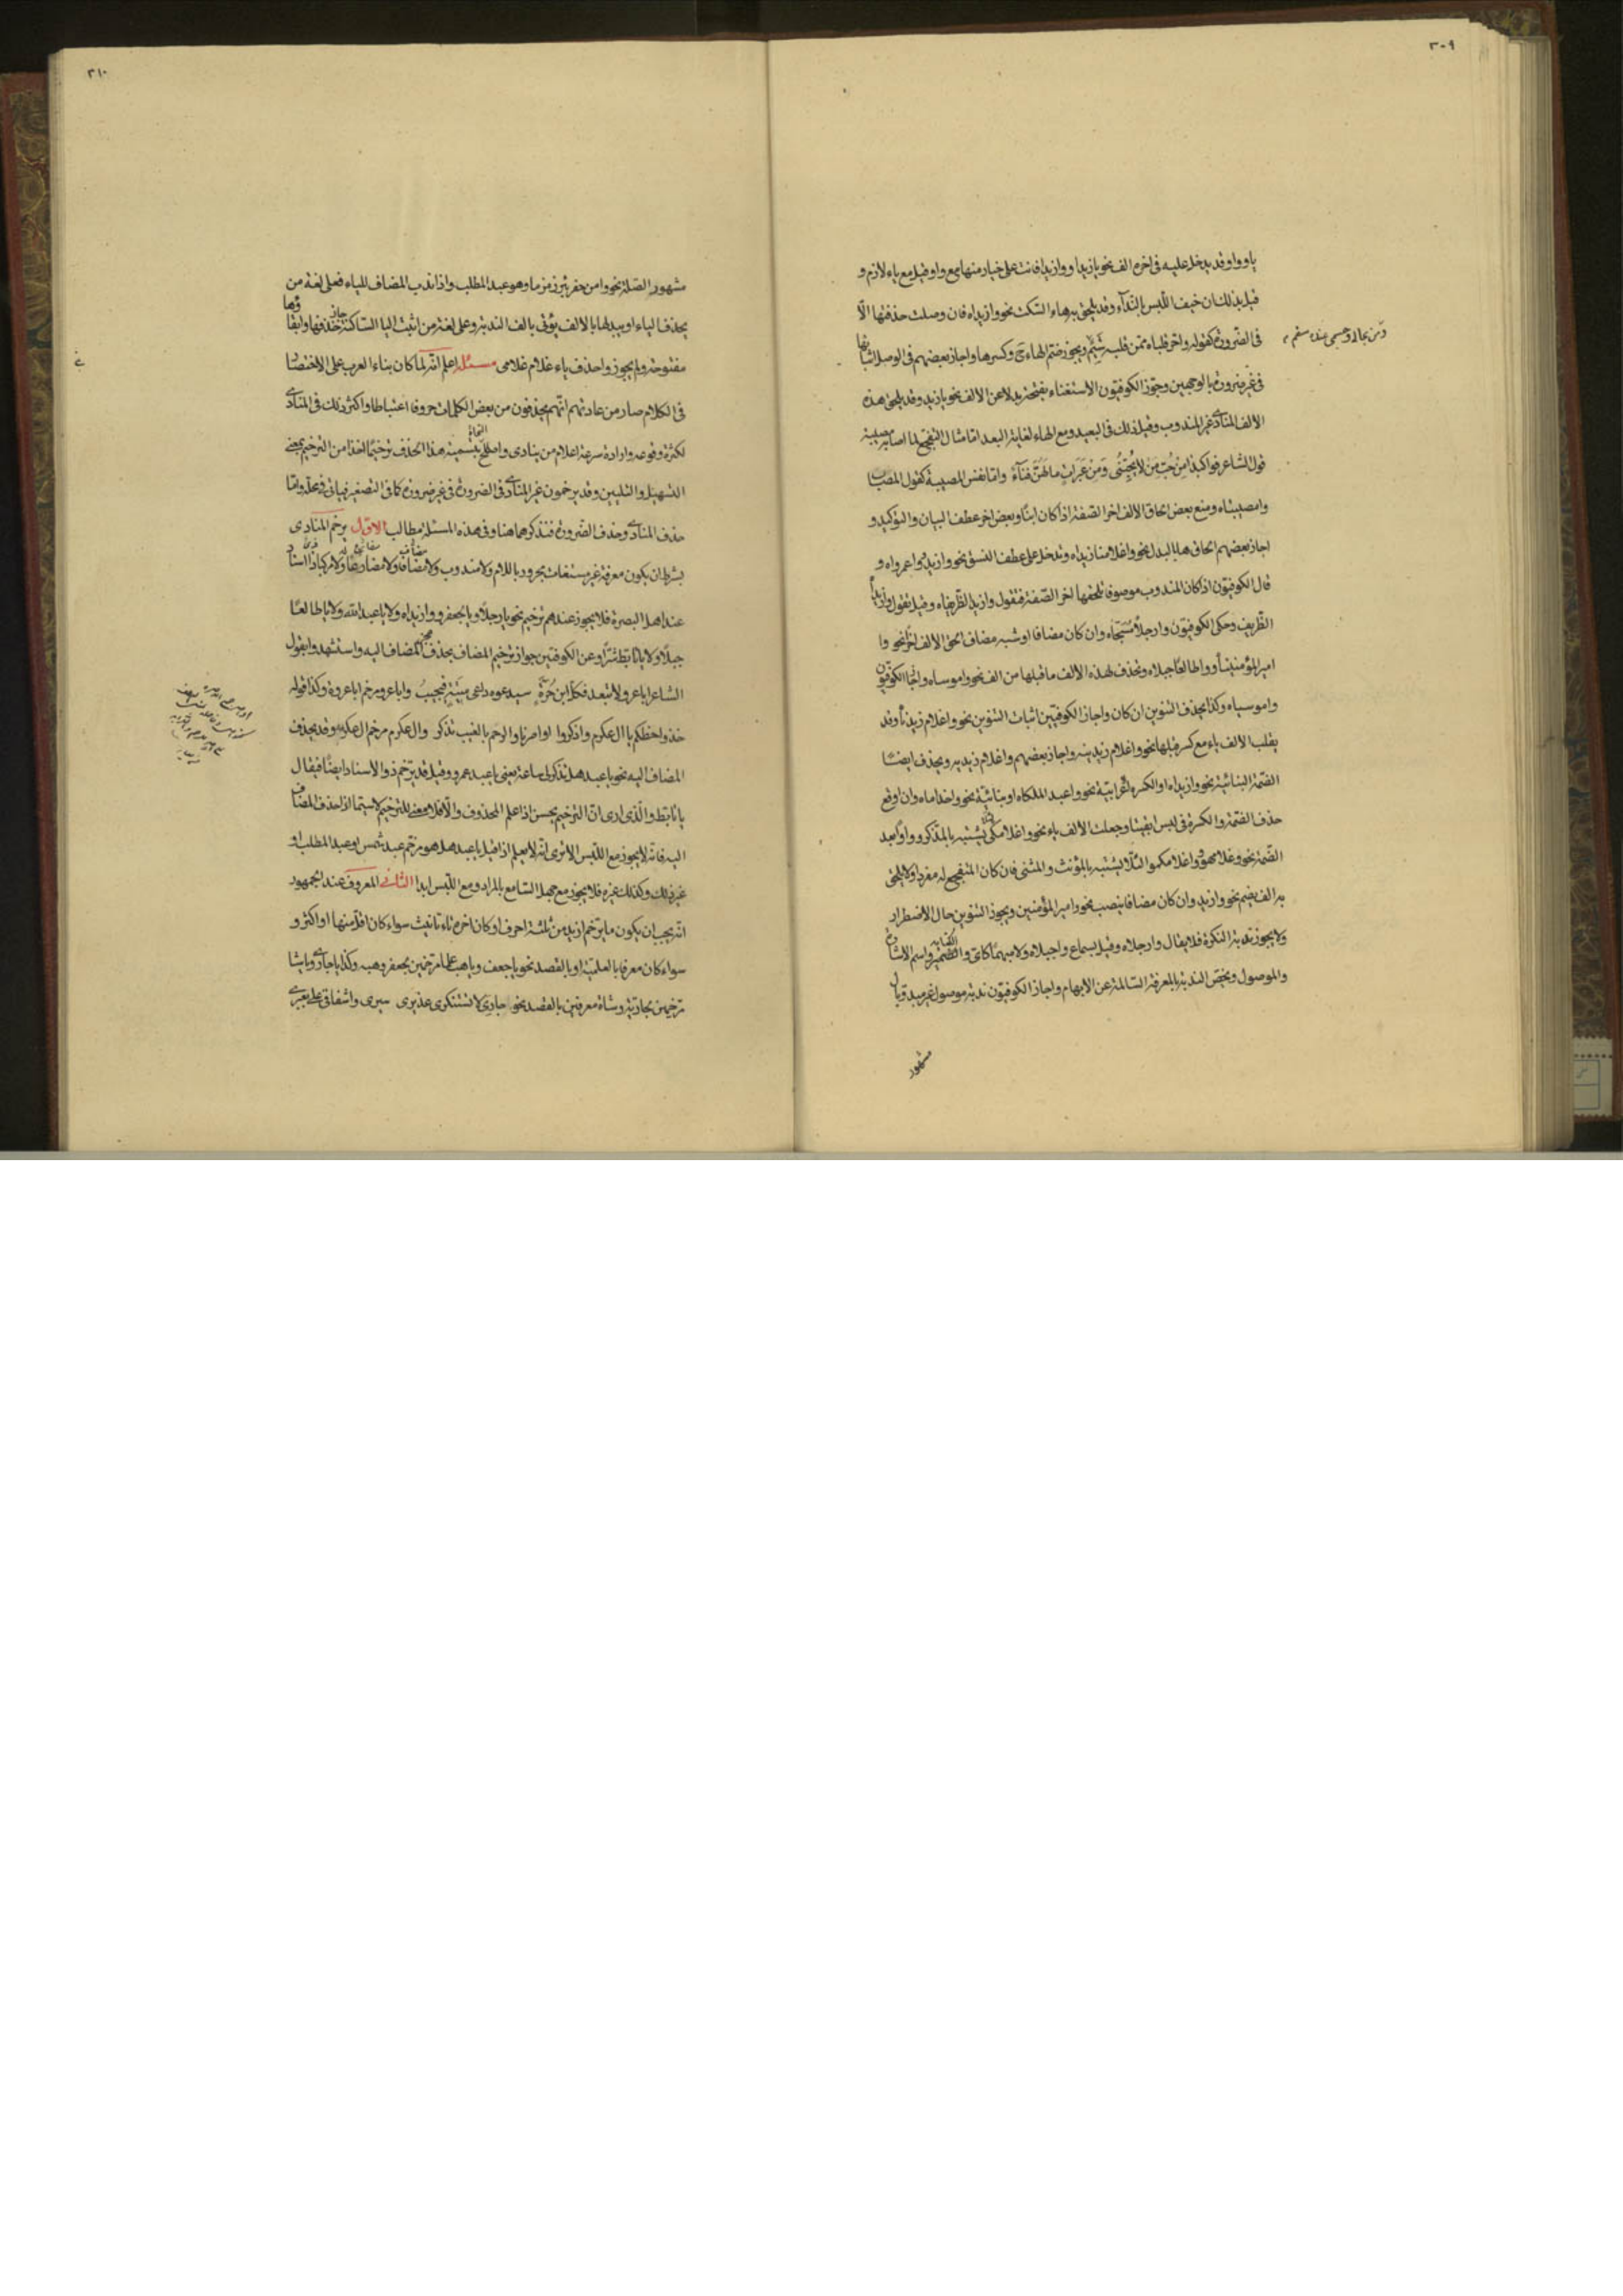 ٣٠٩
يا ووا وقد يدخل عليه فى اخره الف نحو يا زيدا ووا زيدا فانت على خيار منها مع وا وقيل مع ياء لازم و
قيل بذلك ان خيف اللبس بالنداء وقد يلحق به هاء السكت نحو وا زيداه فان وصلت حذفتها الا
فى الضرورة كقوله واحر قلباه ممن قلبه شبم ويجوز ضم الهاء ح وكسرها واجاز بعضهم فى الوصل اثباتها
ومن بحالى وجسمى عنده سقم
فى غير ضرورة بالوجهين وجوز الكوفيون الاستغناء بفتحة بدلا عن الالف نحو يا زيد وقد يلحق هذه
الالف المنادى غير المندوب وقيل ذلك فى البعيد ومع الهاء لغاية البعد اما مثال التفجع لما اصابه مصيبة
قول الشاعر فوا كبدا من حب من لا يحبنى ومن عبرات ما لهن فناء واما نفس المصيبة كقول المصاب
وا مصيبتاه ومنع بعض الحاق الالف اخر الصفة اذا كان ابنا وبعض اخر عطف البيان والتوكيد و
اجاز بعضهم الحاق ها بالبدل نحو وا غلامنا زيداه وتدخل على عطف النسق نحو وا زيد وا عمرواه و
قال الكوفيون اذا كان المندوب موصوفا تلحقها اخر الصفة فتقول وا زيد الظريفاه وقيل تقول وا زيدا
الظريف وحكى الكوفيون وا رجلا مسجاه وان كان مضافا او شبه مضاف الحق الالف اخرا نحو وا
امير المؤمنينا و وا طالعا جبلاه وتحذف لهذه الالف ما قبلها من الف نحو وا موساه واجاز الكوفيون
وا موسياه وكذا يحذف التنوين ان كان واجاز الكوفيين اثبات التنوين نحو وا غلام زيدنا وقد
يقلب الالف ياء مع كسر قبلها نحو وا غلام زيدنيه واجاز بعضهم وا غلام زيديه ويحذف ايضا
الضمة البنائية نحو وا زيداه او الكسرة اعرابية نحو وا عبد الملكاه او بنائية نحو وا حذاماه وان اوقع
حذف الضمة والكسرة فى لبس ابقيتا وجعلت الالف ياء نحو وا غلامكى لئلا يشتبه بالمذكر وواوا بعد
الضمة نحو وغلامهو وا غلامكمو لئلا يشتبه بالمؤنث والمثنى فان كان المتفجع له مفردا ولا يلحق
به الف يضم نحو وا زيد وان كان مضافا ينصب نحو وا امير المؤمنين ويجوز التنوين حال الاضطرار
ولا يجوز ندبة النكرة فلا يقال وا رجلاه وقيل بسماع وا جبلاه ولا مبهما كاى والضمير واسم الاشارة
والموصول ويختص الندبة بالمعرفة السالمة عن الابهام واجاز الكوفيون ندبة موصول غير مبدو بال
مشهور
٣١٠
مشهور الصلة نحو وا من حفر بئر زمزما وهو عبد المطلب واذا ندب المضاف للياء فعلى لغة من
يحذف الياء او يبدلها بالالف يؤتى بالف الندبة وعلى لغة من اثبت اليا الساكنة جاز حذفها وابقاؤها
مفتوحة ولم يجوزوا حذف ياء غلام غلامى مسئلة اعلم انه لما كان بناء العرب على الاختصار
فى الكلام صار من عادتهم انهم يحذفون من بعض الكلمات حروفا اعتباطا واكثر ذلك فى المنادى
لكثرة وقوعه وارادة سرعة اعلام من ينادى واصطلح النحاة بتسمية هذا الحذف ترخيما اخذا من الترخيم بمعنى
التسهيل والتليين وقد يرخمون غير المنادى فى الضرورة فى غير ضرورة كما فى التصغير فياتى فى محله واما
حذف المنادى وحذف الضرورة فنذكرهما هنا وفى هذه المسئلة مطالب الاول يرخم المنادى
بشرط ان يكون معرفة غير مستغاث مجرور باللام ولا مندوب ولا مضاف ولا مضارعا له ولا مركبا ذا اسناد
عند اهل البصرة فلا يجوز عندهم ترخيم نحو يا رجلا ويا لجعفر ووا زيداه ولا يا عبد الله ولا يا طالعا
جبلا ولا يا تابط شرا وعن الكوفيين جواز ترخيم المضاف بحذف عجز المضاف اليه واستشهدوا بقول
الشاعر ابا عرو لا تبعد فكل ابن حرة سيدعوه داعى ميتة فيجيب وابا عرو مرخم ابا عروة وكذا قوله
خذوا حظكم يا ال عكرم واذكروا اواصرنا والرحم بالغيب تذكر وال عكرم مرخم ال عكرمة وقد يحذف
المضاف اليه نحو يا عبد هل تذكرنى ساعة يعنى يا عبد عمرو وقيل قد يرخم ذو الاسناد ايضا فيقال
يا تابط والذى ارى ان الترخيم يحسن اذا علم المحذوف والا فلا معنى للترخيم لا سيما اذا حذف المضاف
اليه فانه لا يجوز مع اللبس الا ترى انه لا يعلم اذا قيل يا عبد هل هو مرخم عبد شمس او عبد المطلب او
غير ذلك وكذلك غيره فلا يجوز مع جهل السامع بالمراد ومع اللبس ابدا الثانى المعروف عند الجمهور
انه يجب ان يكون ما يرخم ازيد من ثلثة احرف او كان اخره تاء تانيث سواء كان اقل منها او اكثر و
سواء كان معرفا بالعلمية او بالقصد نحو يا جعف ويا هب علما مرخمين بجعفر وهبه وكذا يا جارى ويا شا
مرخمين بجارية وشاة معرفين بالقصد نحو جارى لا تستنكرى عذيرى سيرى واشفاقى على بعيرى